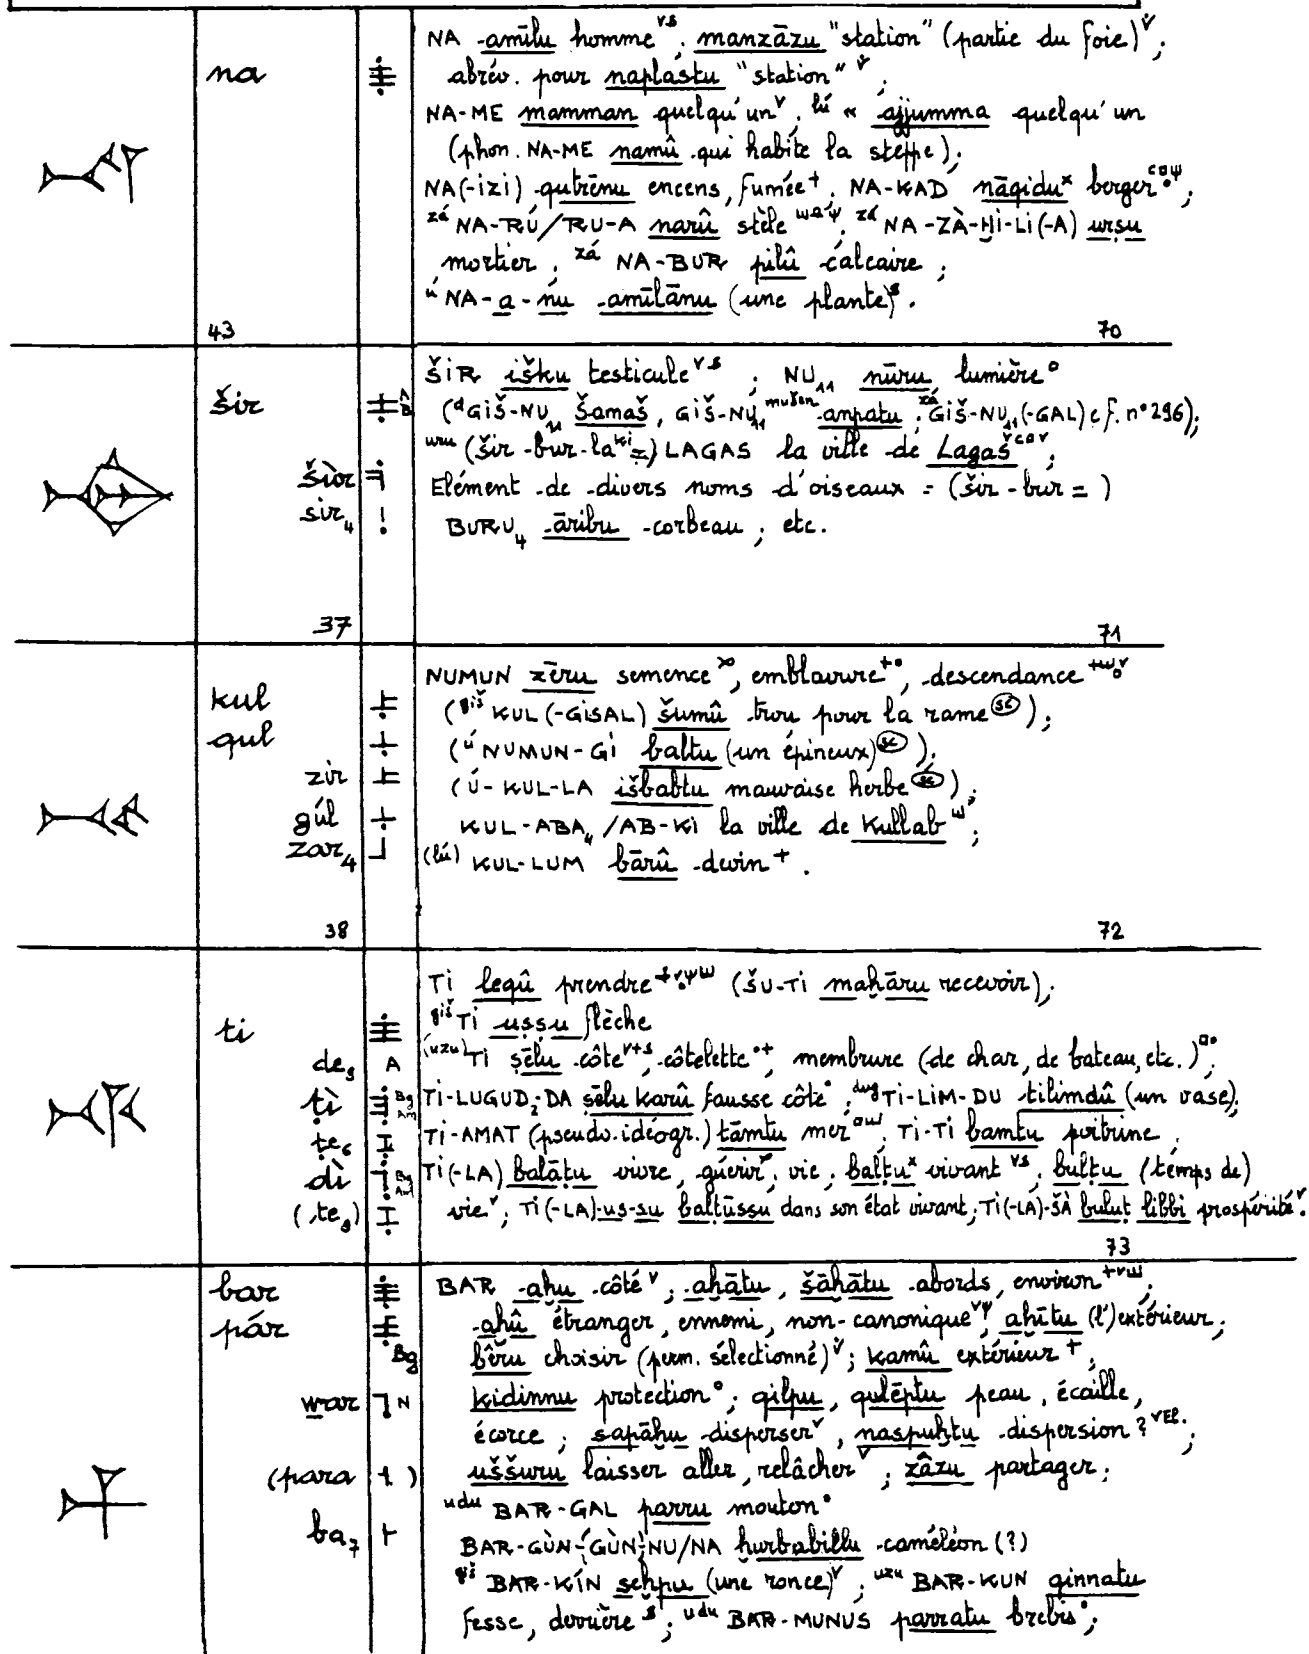 na
NA amīlu homme ; manzāzu "station" (partie du foie) ;
abrév. pour naplastu "station" ;
NA-ME mamman quelqu'un ; lú " ajjumma quelqu'un
(phon. NA-ME namû qui habite la steppe) ;
NA(-izi) qutrēnu encens, fumée ; NA-KAD nāqidu berger ;
zá NA-RÚ/RU-A narû stèle ; zá NA-ZÀ-ḪI-LI(-A) urṣu
mortier ; zá NA-BUR pilû calcaire ;
ú NA-a-nu amīlānu (une plante) .
43 70
šir
šìr
sir₄
ŠIR išku testicule ; NU₁₁ nūru lumière
(ᵈGIŠ-NU₁₁ Šamaš, GIŠ-NU₁₁ mušen anpatu ; zá GIŠ-NU₁₁(-GAL) cf. n°296) ;
uru (šir-bur-la ki =) LAGAS la ville de Lagaš ;
Elément de divers noms d'oiseaux = (šir-bur = )
BURU₄ āribu corbeau ; etc.
37 71
kul
qul
zir
gúl
zar₄
NUMUN zēru semence , emblavure , descendance
(giš KUL(-GISAL) šumû trou pour la rame sc ) ;
(ú NUMUN-GI baltu (un épineux) sc ) ;
(Ú-KUL-LA išbabtu mauvaise herbe sc ) ;
KUL-ABA₄/AB-KI la ville de Kullab ;
(lú) KUL-LUM bārû devin .
38 72
ti
de₉ A
ṭì
ṭe₆
dì
(te₉)
TI leqû prendre (ŠU-TI maḫāru recevoir) ;
giš TI uṣṣu flèche
(uzu) TI ṣēlu côte , côtelette , membrure (de char, de bateau, etc.) ;
TI-LUGUD₂-DA ṣēlu karû fausse côte ; dug TI-LIM-DU tilimdû (un vase) ;
TI-AMAT (pseudo-idéogr.) tāmtu mer ; TI-TI bamtu poitrine ;
TI(-LA) balāṭu vivre, guérir , vie ; balṭu vivant ; bulṭu (temps de)
vie ; TI(-LA)-us-su balṭūssu dans son état vivant ; TI(-LA)-ŠÀ buluṭ libbi prospérité .
73
bar
pár
war N
(para )
ba₇
BAR aḫu côté ; aḫātu, šāḫātu abords, environ ;
aḫû étranger, ennemi, non-canonique ; aḫītu (l')extérieur ;
bêru choisir (perm. sélectionné) ; kamû extérieur ;
kidinnu protection ; qilpu, qulēptu peau, écaille,
écorce ; sapāḫu disperser , naspuḫtu dispersion ? ;
uššuru laisser aller, relâcher ; zâzu partager ;
udu BAR-GAL parru mouton
BAR-GÙN-(GÙN)-NU/NA ḫurbabillu caméléon (?)
giš BAR-KÍN seḫpu (une ronce) ; uzu BAR-KUN qinnatu
fesse, derrière ; udu BAR-MUNUS parratu brebis ;